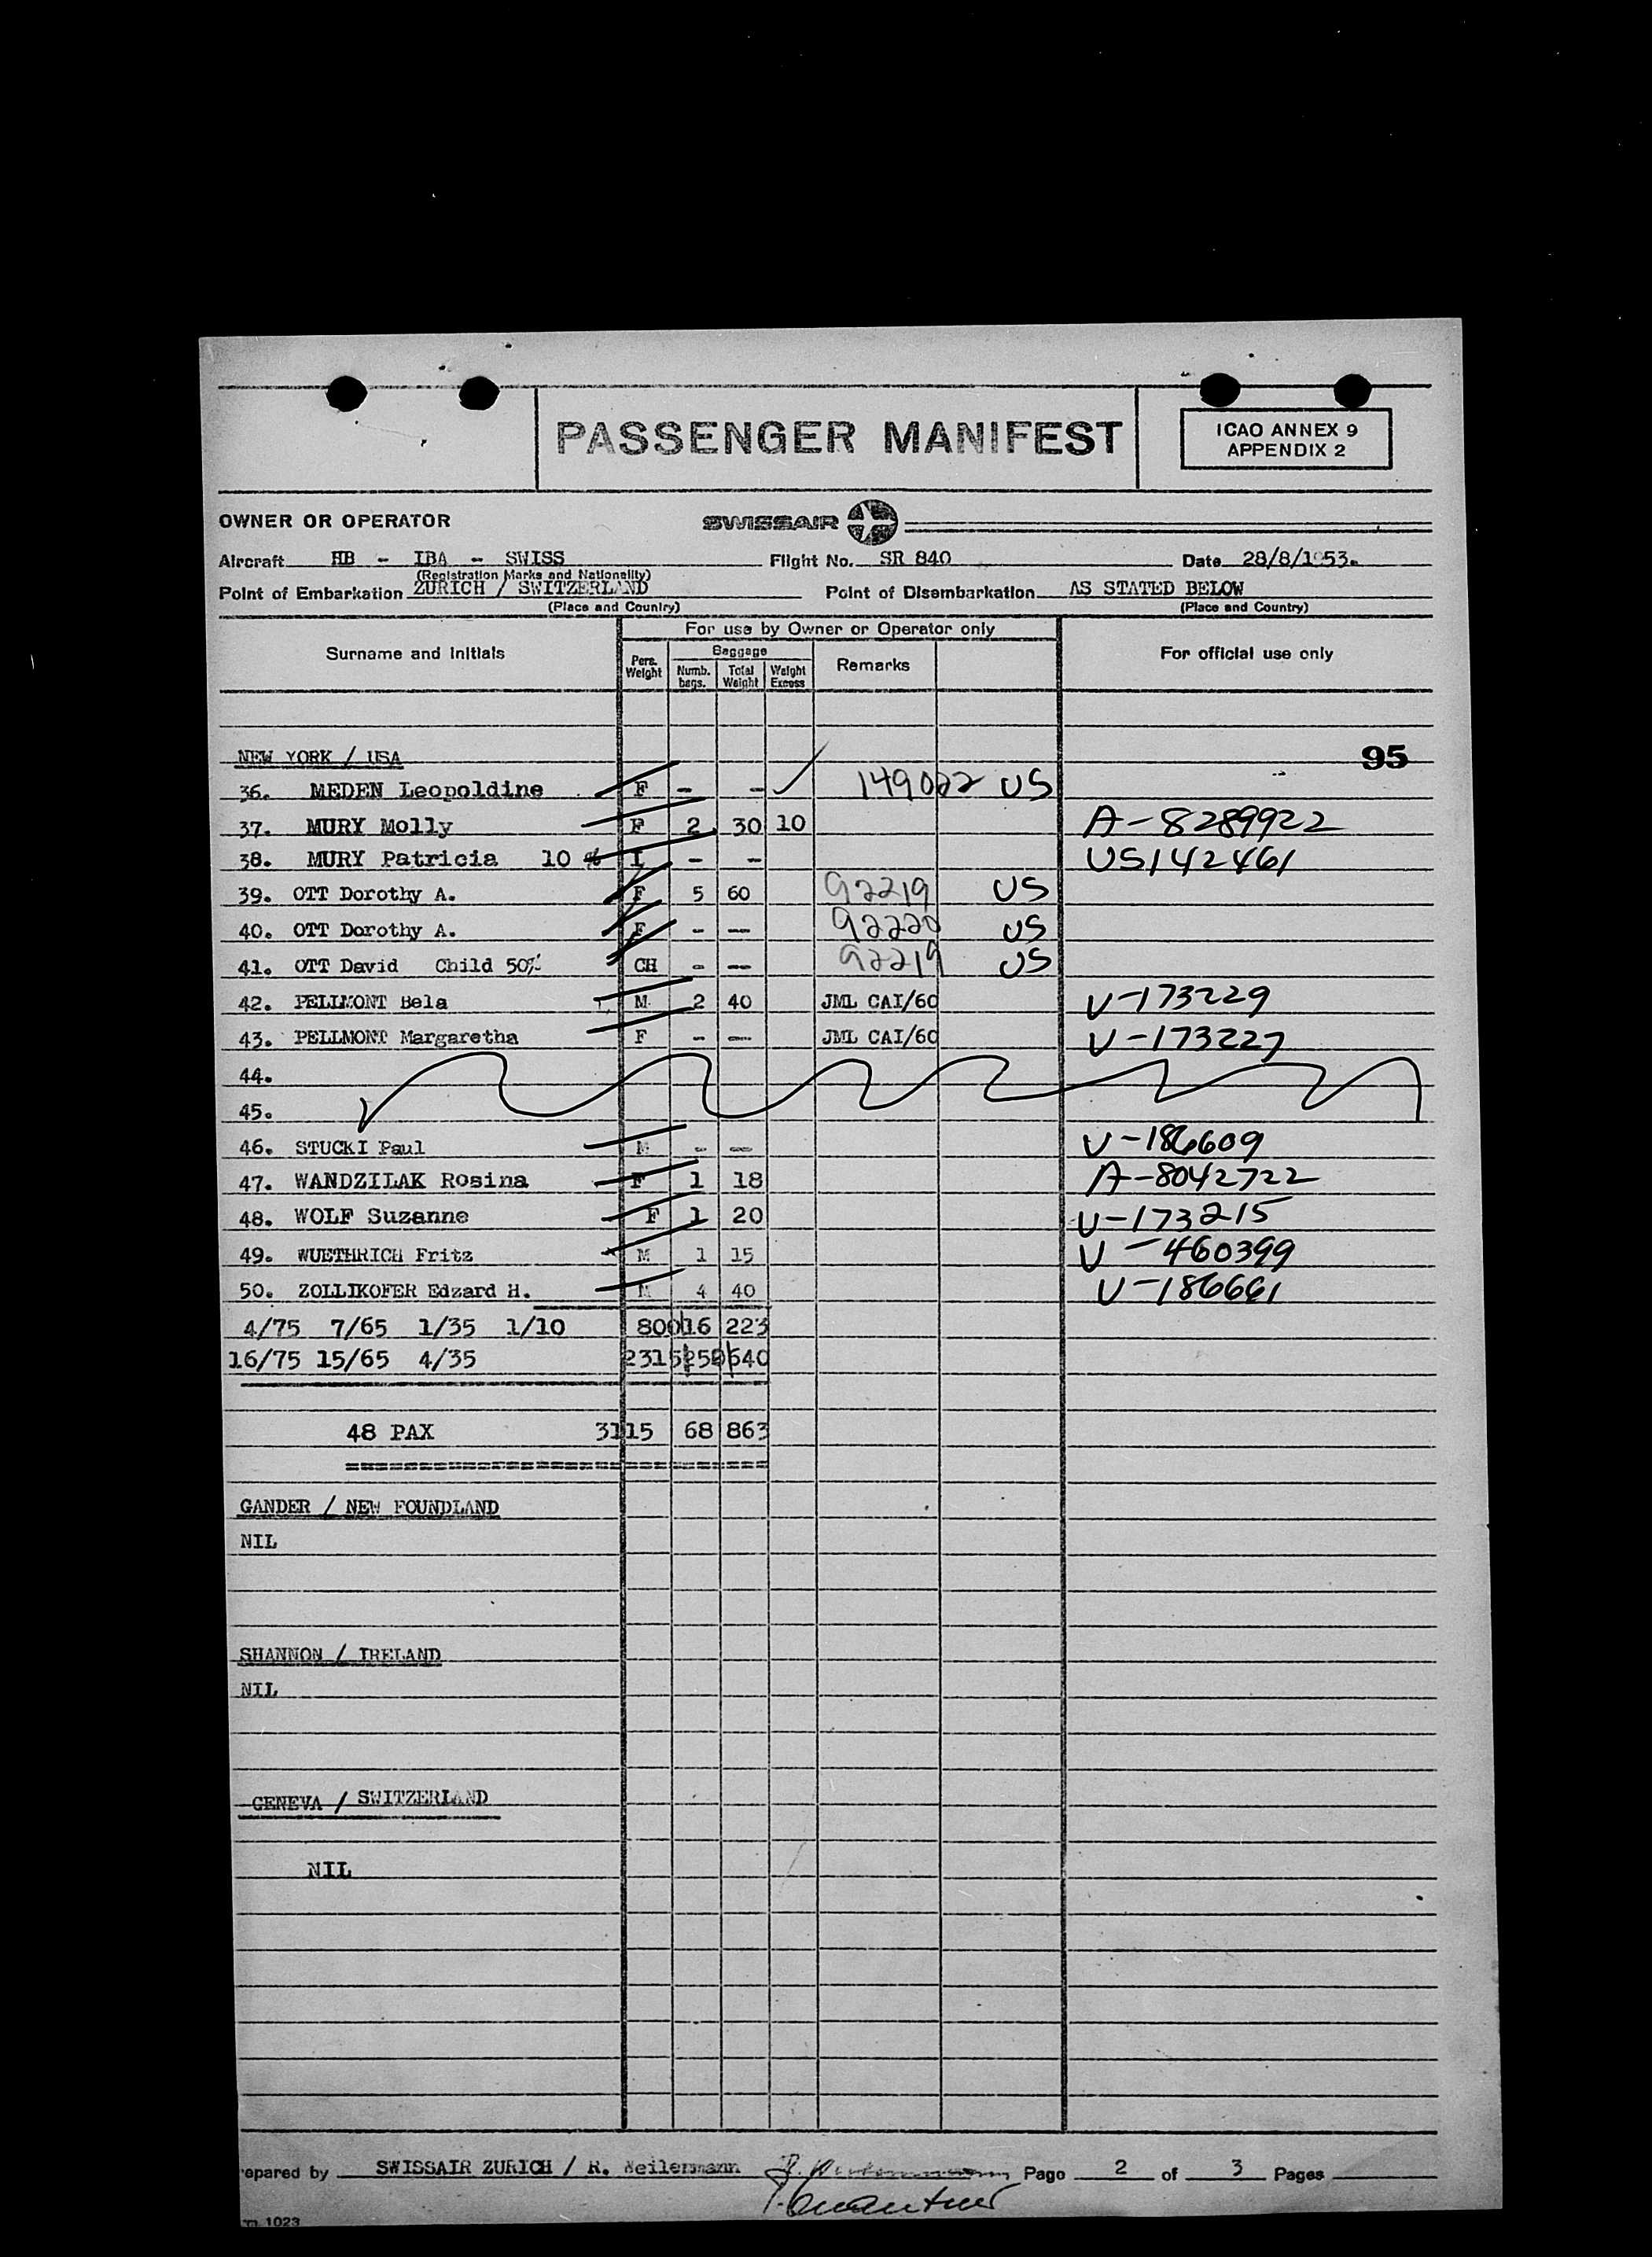 PASSENGER MANIFEST
ICAO ANNEX 9
APPENDIX 2
OWNER OR OPERATOR SWISSAIR
Aircraft HB - IBA - SWISS Flight No. SR 840 Date 28/8/1953.
(Registration Marks and Nationality)
Point of Embarkation ZURICH / SWITZERLAND Point of Disembarkation AS STATED BELOW
(Place and Country) (Place and Country)
For use by Owner or Operator only
Surname and Initials Pers. Weight Baggage Numb. bags. Total Weight Weight Excess Remarks For official use only
NEW YORK / USA 95
36. MEDEN Leopoldine F - - 149022 US
37. MURY Molly F 2 30 10 A-8289922
38. MURY Patricia 10 % I - - US142461
39. OTT Dorothy A. F 5 60 92219 US
40. OTT Dorothy A. F - - 92220 US
41. OTT David Child 50% CH - - 92219 US
42. PELLMONT Bela M 2 40 JML CAI/60 V-173229
43. PELLMONT Margaretha F - - JML CAI/60 V-173227
44.
45.
46. STUCKI Paul M - - V-186609
47. WANDZILAK Rosina F 1 18 A-8042722
48. WOLF Suzanne F 1 20 V-173215
49. WUETHRICH Fritz M 1 15 V-460399
50. ZOLLIKOFER Edzard H. M 4 40 V-186661
4/75 7/65 1/35 1/10 800 16 223
16/75 15/65 4/35 2315 52 640
48 PAX 3115 68 863
GANDER / NEW FOUNDLAND
NIL
SHANNON / IRELAND
NIL
GENEVA / SWITZERLAND
NIL
epared by SWISSAIR ZURICH / R. Weilermann Page 2 of 3 Pages
1023